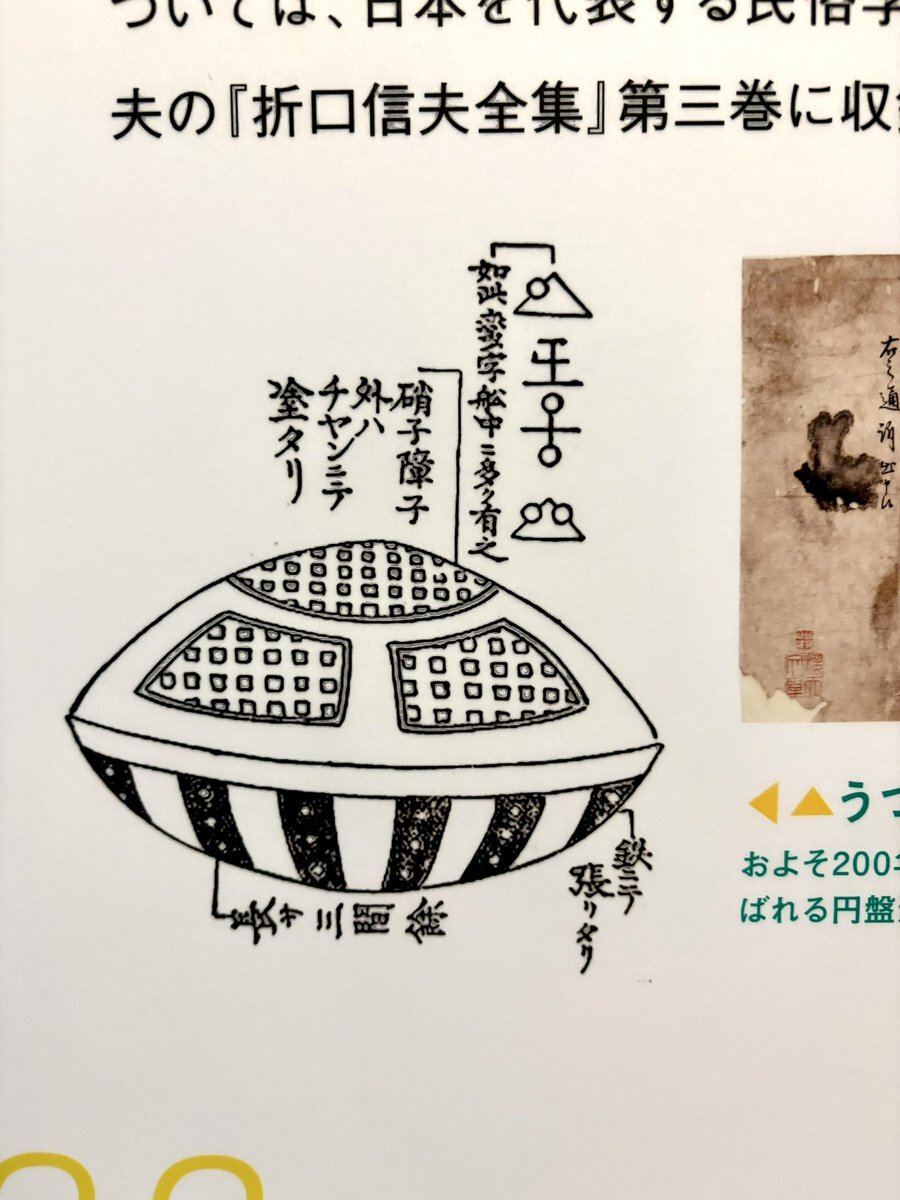 ついては、日本を代表する民俗学
夫の『折口信夫全集』第三巻に収
如此蛮字船中ニ多ク有之
硝子障子
外ハ
チヤンニテ
塗タリ
鉄ニテ
張リタリ
長サ三間餘
◀▲うつ
およそ200
ばれる円盤